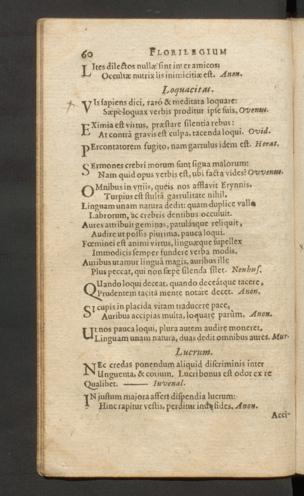 60 FLORILEGIUM
LItes dilectos nullæ sint inter amicos:
Occultæ nutrix lis inimicitiæ est. Anon.
Loquacitas.
VIs sapiens dici, rarò & meditata loquare:
Sæpè loquax verbis proditur ipse suis. Ovenus.
EXimia est virtus, præstare silentia rebus:
At contrà gravis est culpa, tacenda loqui. Ovid.
PErcontatorem fugito, nam garrulus idem est. Horat.
SErmones crebri morum sunt signa malorum:
Nam quid opus verbis est, ubi facta vides? Ovvenus.
OMnibus in vitiis, quéis nos afflavit Erynnis,
Turpius est stultâ garrulitate nihil.
Linguam unam natura dedit: quam duplice vallo
Labrorum, ac crebris dentibus occuluit.
Aures attribuit geminas, patulásque reliquit,
Audire ut possis plurima, pauca loqui.
Fœminei est animi virtus, linguæque supellex
Immodicis semper fundere verba modis.
Auribus utamur linguâ magis, auribus ille
Plus peccat, qui non sæpe silenda silet. Neuhus.
QUando loqui deceat, quando deceátque tacere,
Prudentem tacitâ mente notare decet. Anon.
SI cupis in placida vitam traducere pace,
Auribus accipias multa, loquare parùm. Anon.
UT nos pauca loqui, plura autem audire moneret,
Linguam unam natura, duas dedit omnibus aures. Mur.
Lucrum.
NEc credas ponendum aliquid discriminis inter
Unguenta, & corium. Lucri bonus est odor ex re
Qualibet. —— Iuvenal.
INjustum majora affert dispendia lucrum:
Hinc rapitur vestis, perditur inde fides. Anon.
Acci-